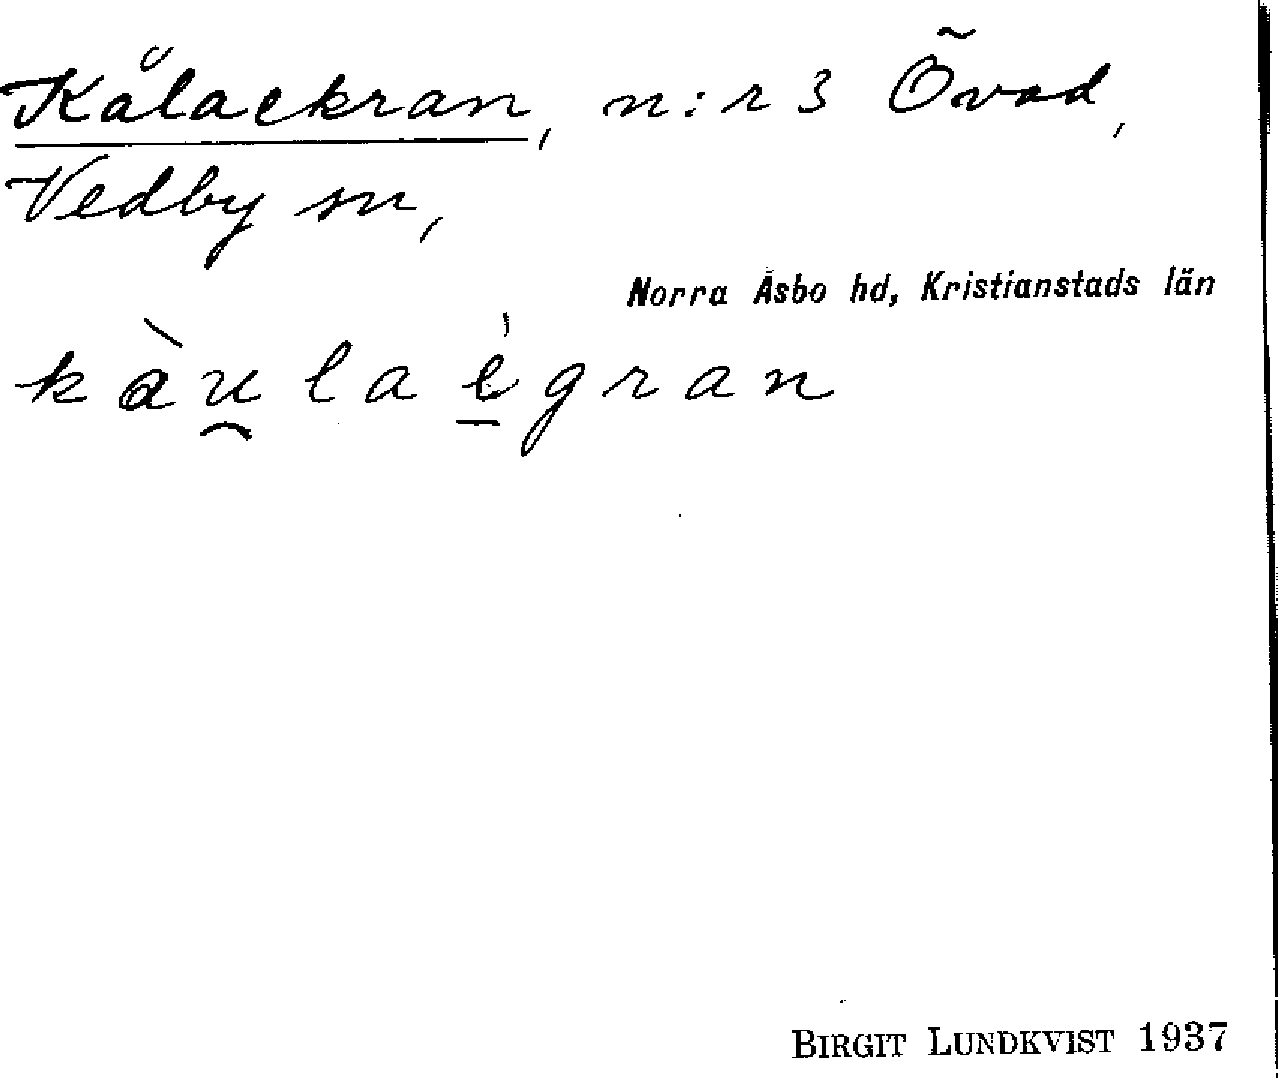 Kålaekran, n:r 3 Övad,
Vedby sn,
Norra Åsbo hd, Kristianstads län
kàu̯laègran
BIRGIT LUNDKVIST 1937